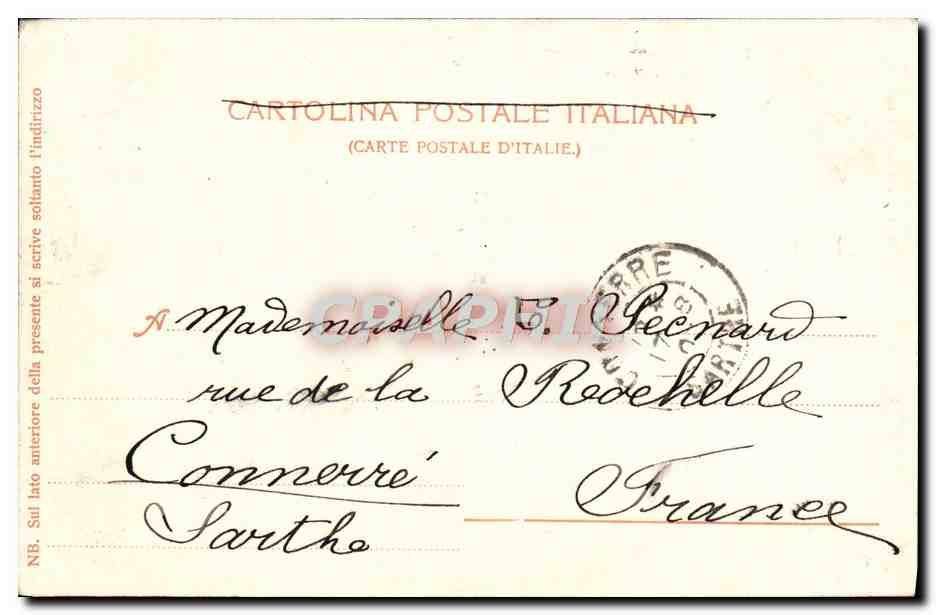 CARTOLINA POSTALE ITALIANA
(CARTE POSTALE D'ITALIE.)
NB. Sul lato anteriore della presente si scrive soltanto l'indirizzo
CONNERRÉ
SARTHE
A Mademoiselle E. Pecnard
rue de la Rochelle
Connerré
France
Sarthe